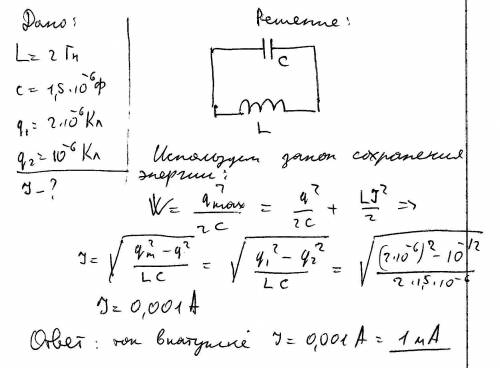 Дано: Решение:
L = 2 Гн
C = 1,5·10⁻⁶ Ф
q₁ = 2·10⁻⁶ Кл
q₂ = 10⁻⁶ Кл
J - ?
C
L
Используем закон сохранения
энергии:
W = q²max/2C = q²/2C + LJ²/2 =>
J = √((qm² - q²)/LC) = √((q₁² - q₂²)/LC) = √(((2·10⁻⁶)² - 10⁻¹²)/(2·1,5·10⁻⁶))
J = 0,001 A
Ответ: ток в катушке J = 0,001 A = 1 мА